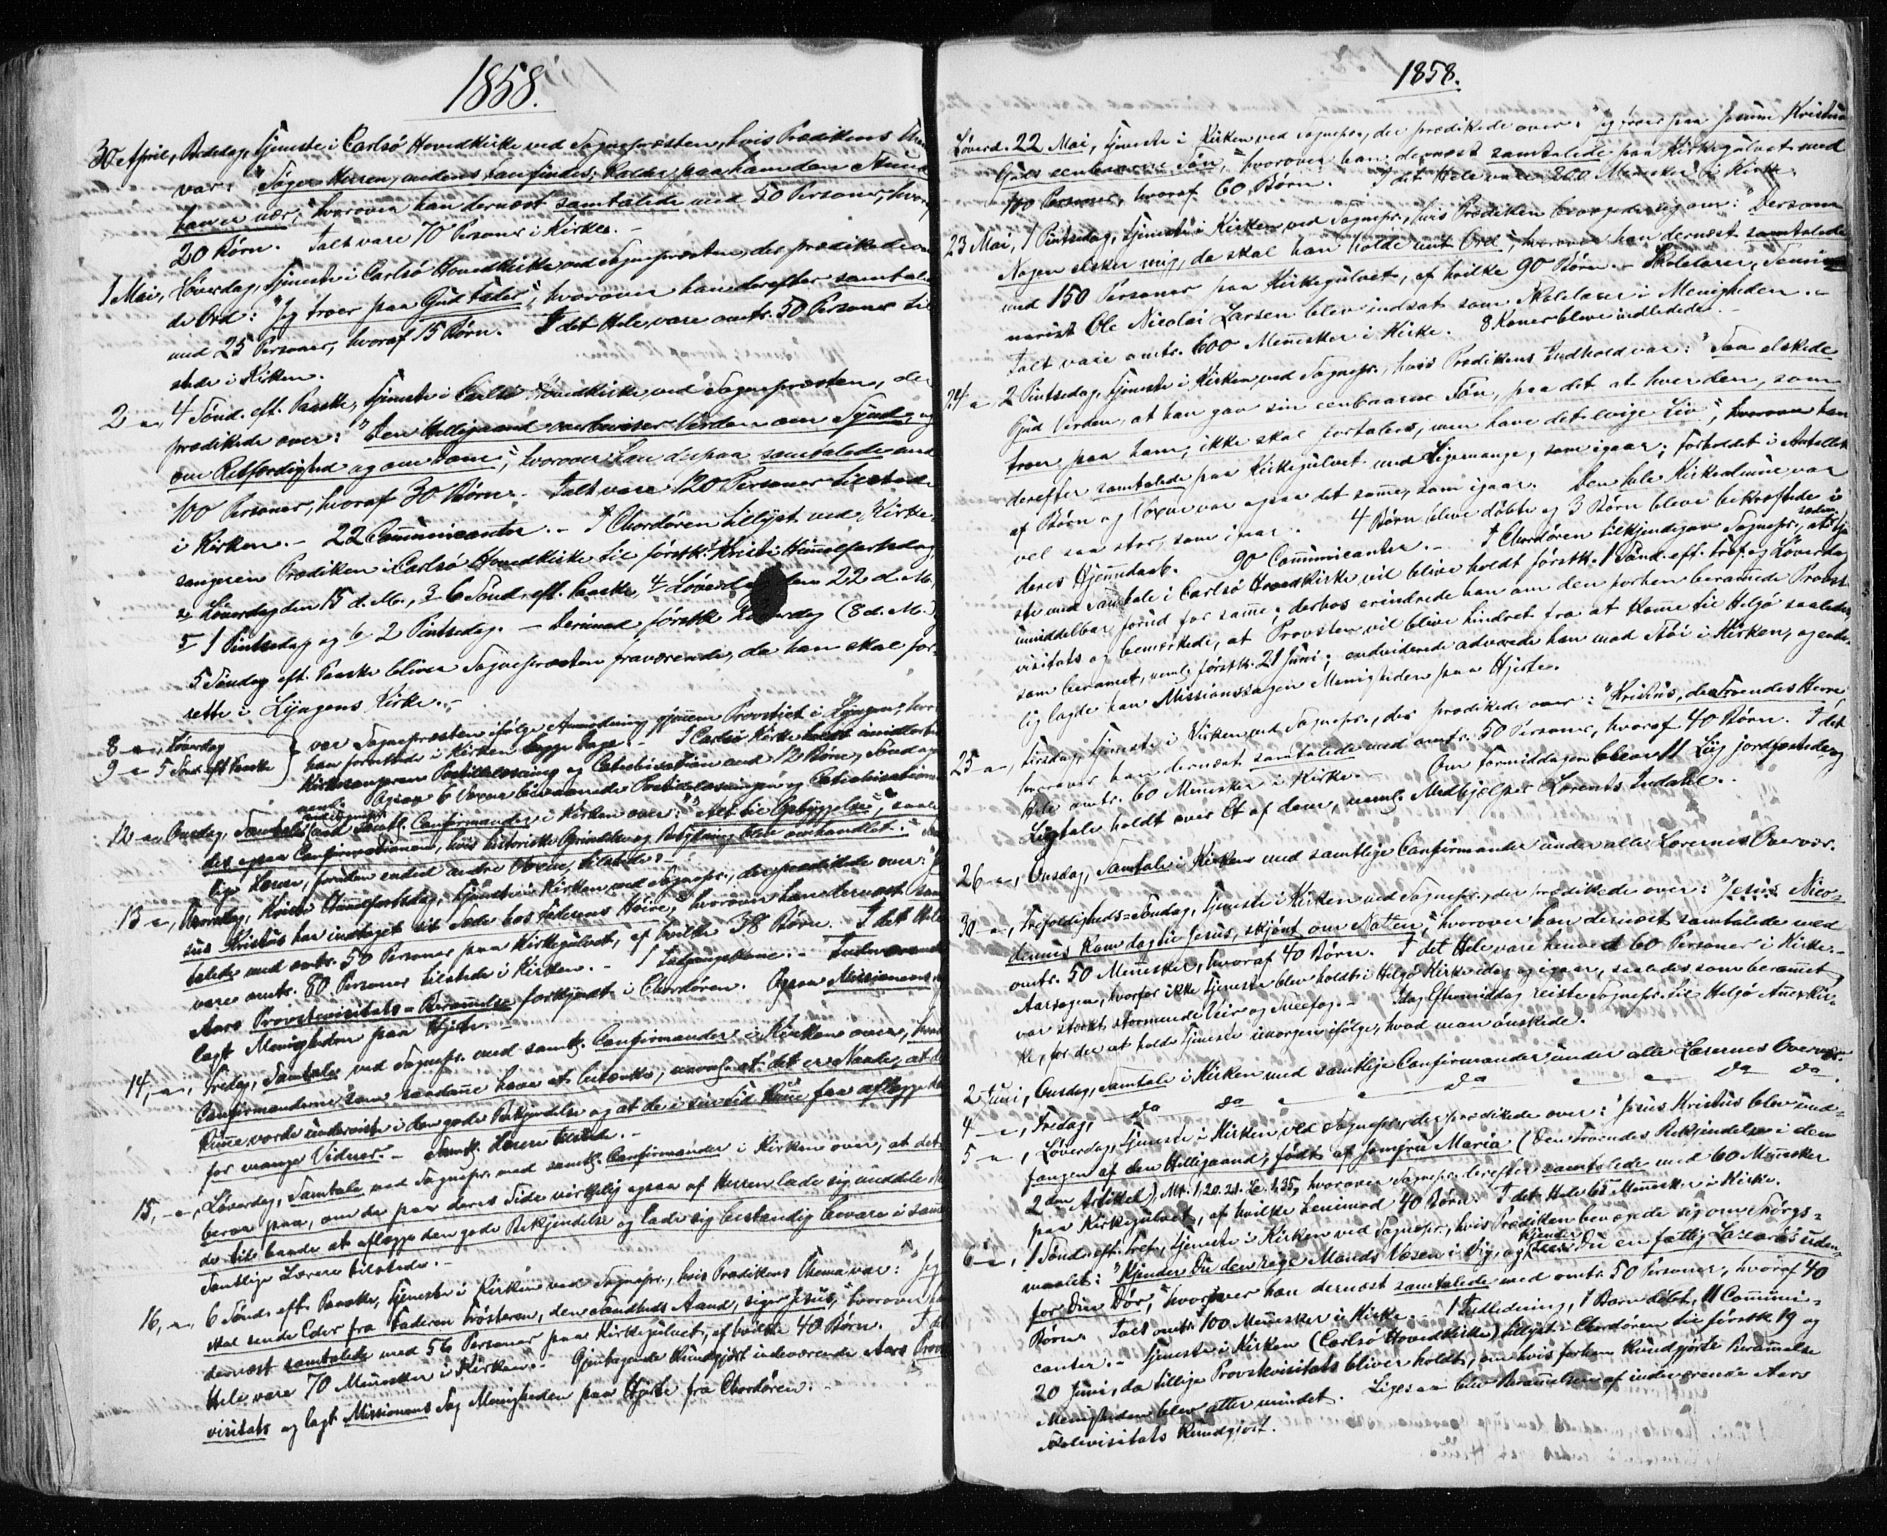 1858.
30 April, Bededag, Tjeneste i Carlsö Hovedkirke ved Sognepræsten, hvis Prædikens Thema
var: "Söger Herren, medens han findes; kalder paa ham, den Stund
han er nær," hvorover han dernæst samtalede med 50 Personer, hvoraf
20 Börn. Ialt vare 70 Personer i Kirke. -
1 Mai, Löverdag, Tjeneste i Carlsö Hovedkirke ved Sognepræsten, der prædikede over
de Ord: "Jeg troer paa Gud Fader", hvorover han derefter samtalede
med 25 Personer, hvoraf 15 Börn. I det Hele vare omtr. 50 Personer til
stede i Kirken.
2 - , 4 Sönd. eft. Paaske, Tjeneste i Carlsö Hovedkirke ved Sognepræsten, der
prædikede over: "Den Helligaand overbeviser Verden om Synd, og
om Retfærdighed og om Dom", hvorover han derpaa samtalede med
100 Personer, hvoraf 30 Börn. Ialt vare 120 Personer tilstede
i Kirken. - 22 Communicanter. - I Chordören tillyst ved Kirke-
sangeren Prædiken i Carlsö Hovedkirke til förstk. 1 Kristi Himmelfartsdag
2 Löverdag den 15 d. M., 3 6 Sönd. eft. Paaske, 4 Löverd. den 22 d. M.
5 1 Pintsedag og 6 2 Pintsedag. - Derimod förstk. Löverdag (8 d. M.)
5 Söndag eft. Paaske bliver Sognepræsten fraværende, da han skal for-
rette i Lyngens Kirke. -
8 - , Löverdag
9 - 5 Sönd. eft. Paaske
var Sognepræsten ifölge Anordning gjennem Provstiet i Lyngen, hvor
han forrettede i Kirken begge Dage. - I Carlsö Kirke holdt imidlertid
Kirkesangeren Postillelæsning og Catechisation med 12 Börn, Söndagen
Ogsaa 6 Voxne bivaanede Postillelæsningen og Catechisationen
12 - , Onsdag, Samtale med samtl. Confirmander i Kirken over: "Alt til Opbyggelse",
des ogsaa Confirmationen, hvis historiske Oprindelse og Betydning blev omhandlet.
lige Lærere, foruden endeel andre Voxne, tilstede. -
13 - , Torsdag, Kristi Himmelfartsdag, Tjeneste i Kirken ved Sognepr., der prædikede over: "Je-
sus Kristus har indtaget sit Sæde hos Faderens Höire", hvorover han dernæst sam-
talede med omtr. 50 Personer paa Kirkegulvet, af hvilke 38 Börn. I det Hele
vare omtr. 80 Personer tilstede i Kirken. - 1 Indgangskone. - Indeværende
Aars Provstevisitats-Berammelse forkyndt i Chordören. Ogsaa Missionens
lagt Menigheden paa Hjerte. -
14, - , Fredag, Samtale ved Sognepr. med samtl. Confirmander i Kirken over, hvad
Confirmanderne som saadanne have at betænke, navnl. at det er Naade, at de
kunne vorde underviste i den gode Bekjendelse og at de i sin Tid kunne faa aflægge den
for mange Vidner. - Samtl. Lærere tilstede. -
15, - , Löverdag, Samtale ved Sognepr. med samtl. Confirmander i Kirken over, at det
beror paa, om de paa deres Side virkelig ogsaa af Herren lade sig meddele
de tilbörde at aflægge den gode Bekjendelse og lade sig bestandig bevare i samme
Samtlige Lærere tilstede. -
16, - , 6 Sönd. eft. Paaske, Tjeneste i Kirken ved Sognepr., hvis Prædikens Thema var: "Jeg
skal sende Eder fra Faderen Trösteren, den Sandheds Aand, siger Jesus," hvorover han
dernæst samtalede med 56 Personer paa Kirkegulvet, af hvilke 40 Börn. I det
Hele vare 70 Mennesker i Kirken. - Gjentagende kundgjort indeværende Aars Provste-
visitats og lagt Missionens Sag Menigheden paa Hjerte fra Chordören. -
1858.
Löverd. 22 Mai, Tjeneste i Kirken ved Sognepr., der prædikede over: "Jeg troer paa Jesum Kristum
Guds eenbaarne Sön," hvorover han dernæst samtalede paa Kirkegulvet med
100 Personer, hvoraf 60 Börn. I det Hele vare 200 Mennesker i Kirke.
23 Mai, 1 Pintsedag, Tjeneste i Kirken ved Sognepr., hvis Prædiken bevægede sig om: "Dersom
Nogen elsker mig, da skal han holde mit Ord", hvorover han dernæst samtalede
med 150 Personer paa Kirkegulvet, af hvilke 90 Börn. - Skolelærer, Semi-
narist Ole Nicolai Larsen blev indsat som Skolelærer i Menigheden. -
Ialt vare omtr. 600 Mennesker i Kirke. 8 Koner bleve indledede. -
24 - 2 Pintsedag, Tjeneste i Kirken ved Sognepr., hvis Prædikens Indhold var: "Saa elskede
Gud Verden, at han gav sin eenbaarne Sön, paa det at hver den, som
troer paa ham, ikke skal fortabes, men have det evige Liv", hvorover han
derefter samtalede paa Kirkegulvet med ligemange, som igaar; Forholdet i Antallet
af Börn og Voxne var ogsaa det samme, som igaar. Den hele Kirkealmue var
vel saa stor, som igaar. 4 Börn bleve döbte og 3 Börn bleve bekræftede i
deres Hjemmedaab. 90 Communicanter. - I Chordören tilkjendegav Sognepr., at Tjene-
ste med Samtale i Carlsö Hovedkirke vil blive holdt förstk. 1 Sönd. eft. Tref. og Löverdag
umiddelbar forud for samme; derhos erindrede han om den forhen berammede Provste-
visitats og bemærkede, at Provsten vil blive hindret fra at komme til Helgö saaledes,
som berammet, neml. förstk. 21 Juni; endvidere advarede han mod Stöi i Kirken, og ende-
lig lagde han Missionssagen Menigheden paa Hjerte.
25 - , Tirsdag, Tjeneste i Kirken ved Sognepr., der prædikede over: "Kristus, de Troendes Herre,"
hvorover han dernæst samtalede med omtr. 50 Personer, hvoraf 40 Börn. I det
Hele omtr. 60 Mennesker i Kirke. - Om Formiddagen bleve 11 Liig jordfæstede og
Liigtale holdt over Et af dem, neml. Medhjelper Lorents Indahl.
26 - , Onsdag, Samtale i Kirken med samtlige Confirmander under alle Lærernes Overvær.
30 - , Trefoldigheds-Söndag, Tjeneste i Kirken ved Sognepr., der prædikede over: "Jesus Nico-
demus kom dog til Jesus, skjönt om Natten", hvorover han dernæst samtalede med
omtr. 50 Mennesker, hvoraf 40 Börn. I det Hele vare henved 60 Personer i Kirke. -
Aarsagen, hvorfor ikke Tjeneste blev holdt i Helgö Kirke idag og igaar, saaledes som berammet,
var stærkt, stormende Veir og Sneefog. - Idag Eftermiddag reiste Sognepr. til Helgö Annexkir-
ke, for der at holde Tjeneste imorgen ifölge, hvad man önskede.
2 Juni, Onsdag, Samtale i Kirken med samtlige Confirmander under alle Lærernes Overvær.
4 - , Fredag, - do do - - do - - do do.
5 - , Löverdag, Tjeneste i Kirken ved Sognepr., der prædikede over: "Jesus Kristus blev und-
fangen af den Helligaand, födt af Jomfru Maria (Den Troendes Bekjendelse i den
2den Artikkel) Mt. 1, 20. 21. Lc. 1, 35, hvorover Sognepr. derefter samtalede med 60 Mennesker
paa Kirkegulvet, af hvilke henimod 40 Börn. I det Hele 65 Mennesker i Kirke.
6 - , 1 Sönd. eft. Tref., Tjeneste i Kirken ved Sognepr., hvis Prædiken bevægede sig om Spörgs-
maalet: "Kjender Du den rige Mands Væsen i Dig, og kjender Du en fattig Lazarus uden-
for Din Dör," hvorover han dernæst samtalede med omtr. 50 Personer, hvoraf 40
Börn. Ialt omtr. 100 Mennesker i Kirke. - 1 Indledning, 1 Barn döbt, 11 Communi-
canter. - Tjeneste i Kirken (Carlsö Hovedkirke) tillyst i Chordören til förstk. 19 og
20 Juni, da tillige Provstevisitats bliver holdt, om hvis forhen kundgjorte Berammelse
Menigheden blev atter mindet. Ligesaa blev Berammelsen af indeværende Aars
Skolevisitats kundgjort.